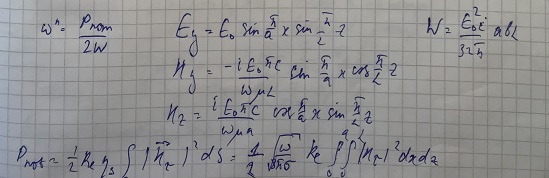 ω'' = Pпот / 2W   Ey = E₀ sin π/a x sin π/L z   W = E₀² ε / 32π abL
Hy = -i E₀ πc / ωμL sin π/a x cos π/L z
Hz = i E₀ πc / ωμa cos π/a x sin π/L z
Pпот = 1/2 Re ηs ∫ |H⃗τ|² dS = 1/2 √ω/8πσ Re ∫∫ |Hτ|² dx dz